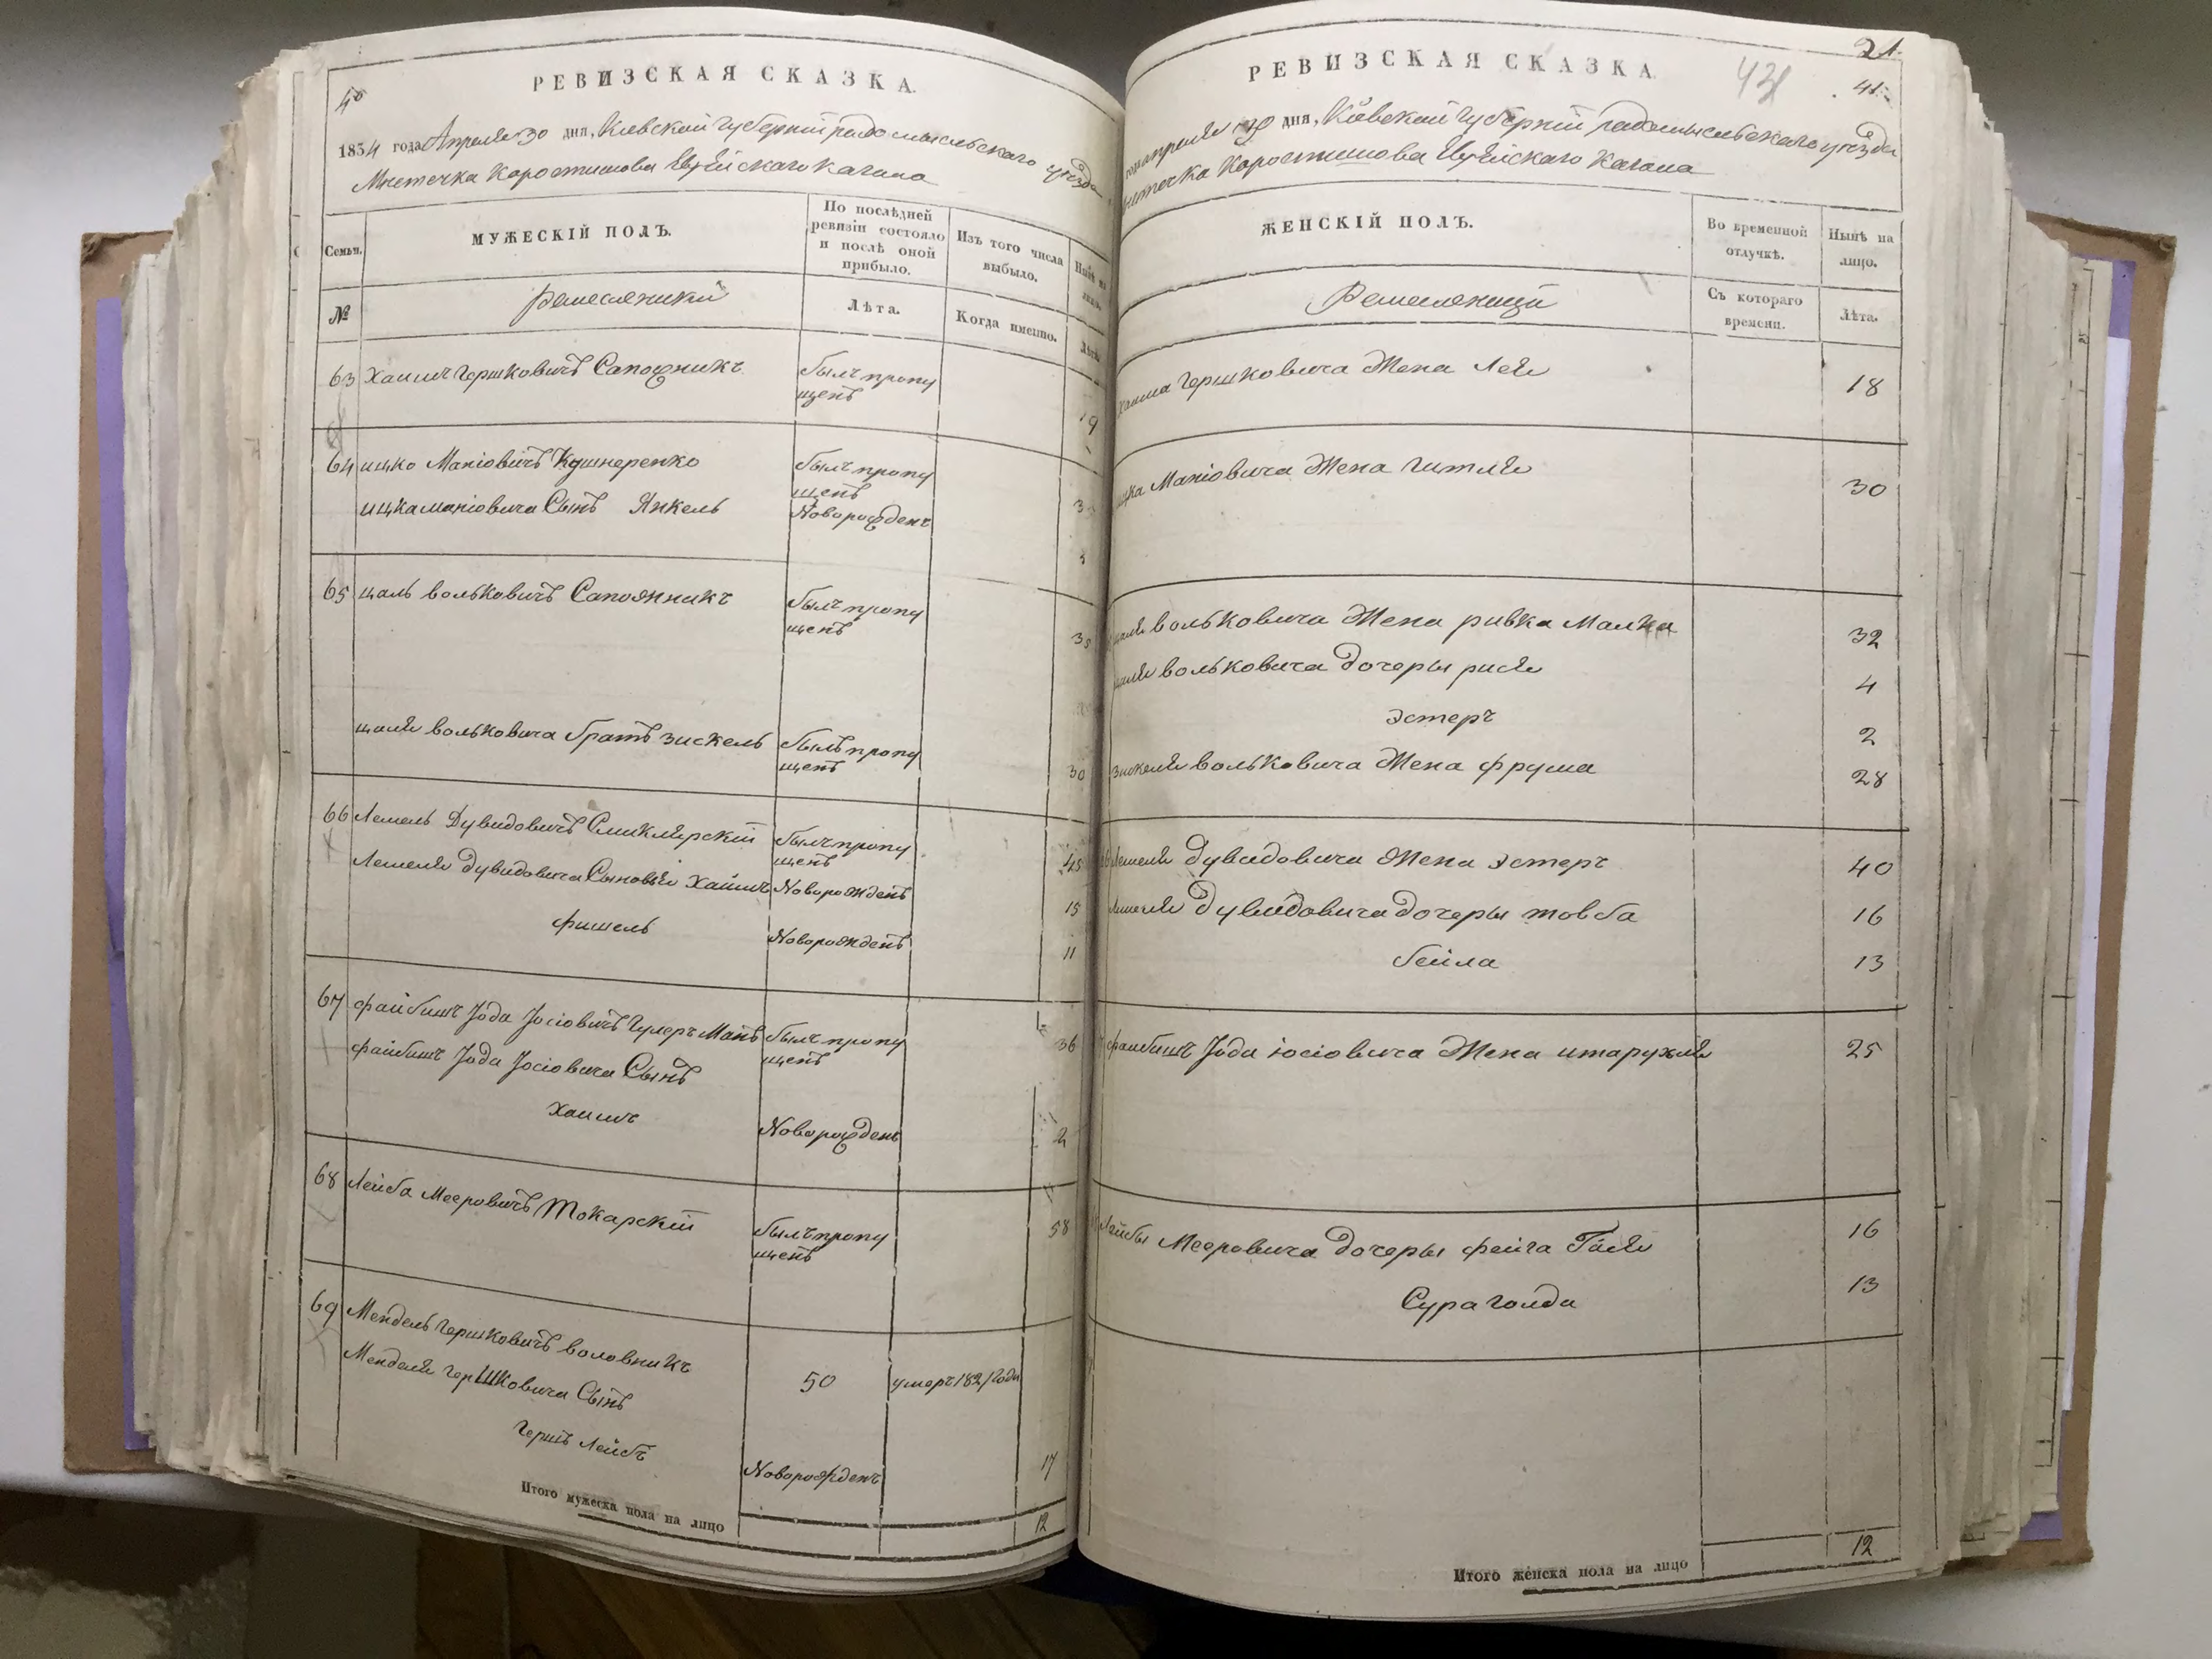 40
РЕВИЗСКАЯ СКАЗКА.
1834 года Апреля 30 дня, Киевской губернїи радомысльскаго уезда
Местечка Коростишова Еврейскаго Кагала
Семьи.
МУЖЕСКІЙ ПОЛЪ.
По послѣдней ревизіи состояло и послѣ оной прибыло.
Изъ того числа выбыло.
Нынѣ на лицо.
№
Ремесленики
Лѣта.
Когда именно.
Лѣта.
63 Хаимъ Гершковичъ Сапожникъ
былъ пропу
щенъ
19
64 ицко Маніовичъ Кушнеренко
былъ пропу
щенъ
ицка маніовича Сынъ Янкель
Новорожденъ
3
65 цаль вольковичъ Сапожникъ
былъ пропу
щенъ
цаля вольковича братъ зискель
былъ пропу
щенъ
30
66 Лемель Дувидовичъ Смиклярскїй
былъ пропу
щенъ
45
Лемеля Дувидовича Сыновья Хаимъ
Новорожденъ
15
фишель
Новорожденъ
11
67 файбишъ Јода Јосіовичъ Гулерманъ
былъ пропу
щенъ
36
файбишъ Јода Јосіовича Сынъ
Хаимъ
Новорожденъ
2
68 Лейба Мееровичъ Токарскїй
былъ пропу
щенъ
58
69 Мендель Гершковичъ воловникъ
50
умеръ 1821 года
Менделя Гершковича Сынъ
Гершъ Лейбъ
Новорожденъ
17
Итого мужеска пола на лицо
12
РЕВИЗСКАЯ СКАЗКА
43
21.
41
апреля 30 дня, Киевской Губернїи радомысльскаго уезда
местечка Коростишова Еврейскаго Кагала
ЖЕНСКІЙ ПОЛЪ.
Во временной отлучкѣ.
Нынѣ на лицо.
Ремесленицы
Съ котораго времени.
Лѣта.
Хаима Гершковича Жена Лея
18
ицка Маніовича Жена Гитля
30
цаля вольковича Жена ривка Малка
32
цаля вольковича дочеры рися
4
эстеръ
2
зискеля вольковича Жена фрума
28
Лемеля Дувидовича Жена эстеръ
40
Лемеля Дувидовича дочеры товба
16
бейла
13
файбишъ Јода іосіовича Жена итарухля
25
Лейбы Мееровича дочеры фейга Гися
16
Сура голда
13
Итого женска пола на лицо
12